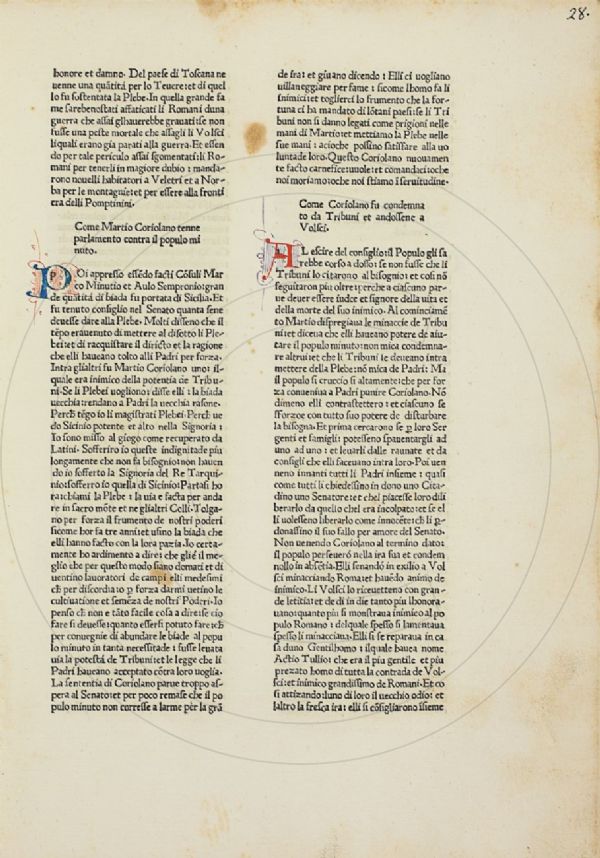 28.
honore et damno. Del paese di Toscana ne
uenne una quãtitá per lo Teuere: et di quel
lo fu sostentata la Plebe. In quella grande fa
me sarebenostati affaticati li Romani duna
guerra che assai glhauerebbe grauati: se non
fusse una peste mortale che assagli li Volsci
liquali erano gia parati alla guerra. Et essen
do per tale periculo assai sgomentati: li Ro-
mani per tenerli in magiore dubio: manda-
rono nouelli habitatori a Veletri et a Nor-
ba per le montagnie: et per essere alla fronti
era delli Pomptinini.
Come Martio Coriolano tenne
parlamento contra il populo mi
nuto.
POi appresso essédo facti Cósuli Mar
co Minutio et Aulo Sempronio: gran
de quátitá di biada fu portata di Sicilia. Et
fu tenuto consiglio nel Senato quanta sene
deuesse dare alla Plebe. Molti disseno che il
tẽpo erauenuto di mettere al disotto li Ple-
bei: et di racquistare il diricto et la ragione
che elli haueano tolto alli Padri per forza.
Intra glialtri fu Martio Coriolano uno: il-
quale era inimico della potentia de Tribu-
ni-Se li Plebei uogliono: disse elli: la biada
uecchia: rendano a Padri la uecchia rasone.
Perchẽ tégo io li magistrati Plebei. Perchẽ ue
do Sicinio potente et alto nella Signoria:
Io sono misso al giogo come recuperato da
Latini. Sofferiro io queste indignitade piu
longamente che non fa bisogno: non hauen
do io sofferto la Signoria del Re Tarqui-
nio: sofferro io quella di Sicinio: Partasi ho
ra: chiami la Plebe: la uia e facta per anda
re in sacro mõte et ne glialtri Colli. Tolga-
no per forza il frumento de nostri poderi
sicome hor fa tre anni: et usino la biada che
elli hanno facto con la lora pazia. Io certa-
mente ho ardimento a dire: che glié il me-
glio che per questo modo siano domati et di
uentino lauoratori de campi elli medesimi
ch per discordia: o p forza darmi uetino le
cultiuatione et semẽza de nostri Poderi. Io
penso ch non e tãto facile cosa a dire: se cio
fare si deuesse: quanto essersi potuto fare: ch
per conuegnie di abundare le biade al popu
lo minuto in tanta necessitade: fusse leuata
uia la potestà de Tribuni: et le legge che li
Padri haueano acceptato cõtra loro uoglia.
La sententia di Coriolano parue troppo as-
pera al Senato: et per poco remase che il po
pulo minuto non corresse a larme pèr la grã
de ira: et giuano dicendo: Elli ci uogliano
uillaneggiare per fame: sicome lhomo fa li
inimici: et toglierci lo frumento che la for-
tuna ci ha mandato di lõtani paesi: se li Tri
buni non si danno legati come prigioni nelle
mani di Martio: et mettiamo la Plebe nelle
sue mani: acioche possino satisfare alla uo
luntade loro. Questo Coriolano nuouamen
te facto carnefice: uuole: et comandaci: oche
noi moriamo: oche noi stiamo ĩ seruitudine.
Come Coriolano fu condemna
to da Tribuni et andossene a
Volsci.
AL escire del consiglio: il Populo gli sa
rebbe corso a dosso: se non fusse che li
Tribuni lo citarono al bisogno: et cosi nõ
seguitaron piu oltre: perche a ciascuno par-
ue deuer essere iudice et signore della uita et
della morte del suo inimico. Al cominciamẽ
to Martio dispregiaua le minaccie de Tribu
ni et diceua che elli haueano potere de aiu-
tare il populo minuto: non mica condemna-
re altrui: et che li Tribuni se deueano intra
mettere della Plebe: nõ mica de Padri: Ma
il populo si cruccio si altamente: che per for
za conueniua a Padri punire Coriolano. Nõ
dimeno elli contrastettero: et ciascuno se
sforzoe con tutto suo potere de distarbare
la bisogna. Et prima cercarono se p loro Ser
genti et famigli: potesseno spauentargli ad
uno ad uno: et leuarli dalle raunate et da
consigli che elli faceuano intra loro. Poi uen
neno inanti tutti li Padri insieme: quasi
come tutti li chiedessino in dono uno Cita-
dino uno Senatore: et chel piacesse loro di li
berarlo da quello chel era incolpato: et se el
li uolesseno liberarlo come innocẽte: ch li p
donassino il suo fallo per amore del Senato.
Non uenendo Coriolano al termino dato:
il populo perseueró nella ira sua et condem
nollo in absẽtia. Elli senando in exilio a Vol
sci minacciando Roma: et hauẽdo animo de
inimico. Li Volsci lo riceuetteno con gran-
de letitia: et de di in die tanto piu lhonora-
uano: quanto piu si monstraua inimico al po
pulo Romano: delquale spesso si lamentaua
spesso li minacciaua. Elli si se reparaua in ca
sa duno Gentilhomo: ilquale hauea nome
Actio Tullio: che era il piu gentile et piu
prezato homo di tutta la contrada de Vol-
sci: et inimico grandissimo de Romani. Et co
si attizando: luno di loro il uecchio odio: et
laltro la fresca ira: elli si cõsigliarono isieme